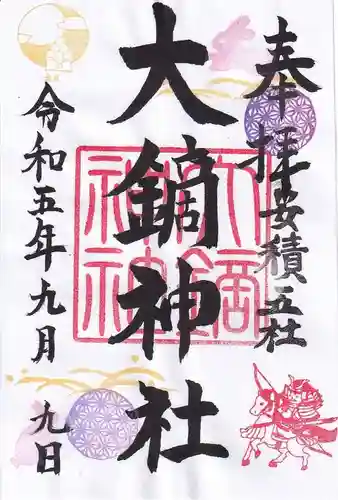 奉拝 安積五社
大鏑神社
大鏑神社
令和五年九月九日